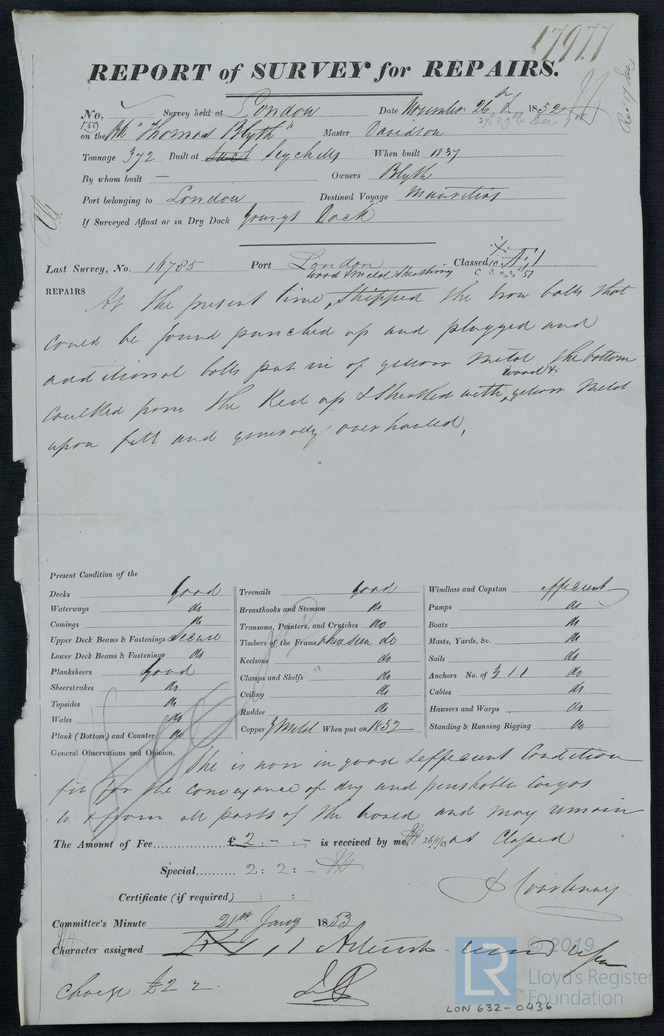 17977
REPORT of SURVEY for REPAIRS.
No. Survey held at London Date November 26th 1852
on the Bk "Thomas Blyth" Master Davidson
Tonnage 372 Built at Seychelles When built 1837
By whom built — Owners Blyth
Port belonging to London Destined Voyage Mauritius
If Surveyed Afloat or in Dry Dock Youngs Dock
Last Survey, No. 16785 Port London Classed
wood & Metal Sheathing
REPAIRS At the present time, Stripped the iron bolts that
could be found punched up and plugged and
additional bolts put in of yellow Metal the bottom
wood &
caulked from the Keel up & Sheathed with yellow Metal
upon felt and generally overhauled,
Present Condition of the
Decks good
Waterways do
Comings do
Upper Deck Beams & Fastenings Secure
Lower Deck Beams & Fastenings do
Planksheers good
Sheerstrakes do
Topsides do
Wales do
Plank (Bottom) and Counter do
Treenails good
Breasthooks and Stemson do
Transoms, Pointers, and Crutches do
Timbers of the Frame when seen do
Keelsons do
Clamps and Shelfs " do
Ceiling do
Rudder do
Copper Y Metal When put on 1852
Windlass and Capstan efficient
Pumps do
Boats do
Masts, Yards, &c. do
Sails do
Anchors No. of 3 1 1 do
Cables do
Hawsers and Warps do
Standing & Running Rigging do
General Observations and Opinion, She is now in good & efficient Condition
fit for the conveyance of dry and perishable cargos
to & from all parts of the world and may remain
The Amount of Fee £ 2 : - : - is received by me, as Classed
Special 2 : 2 : -
Certificate (if required) : :
J Courtenay
Committee's Minute 21st Jany 1853
Character assigned
Charge £2 2.
© 2019
LR
Lloyd's Register
Foundation
LON 632-0436